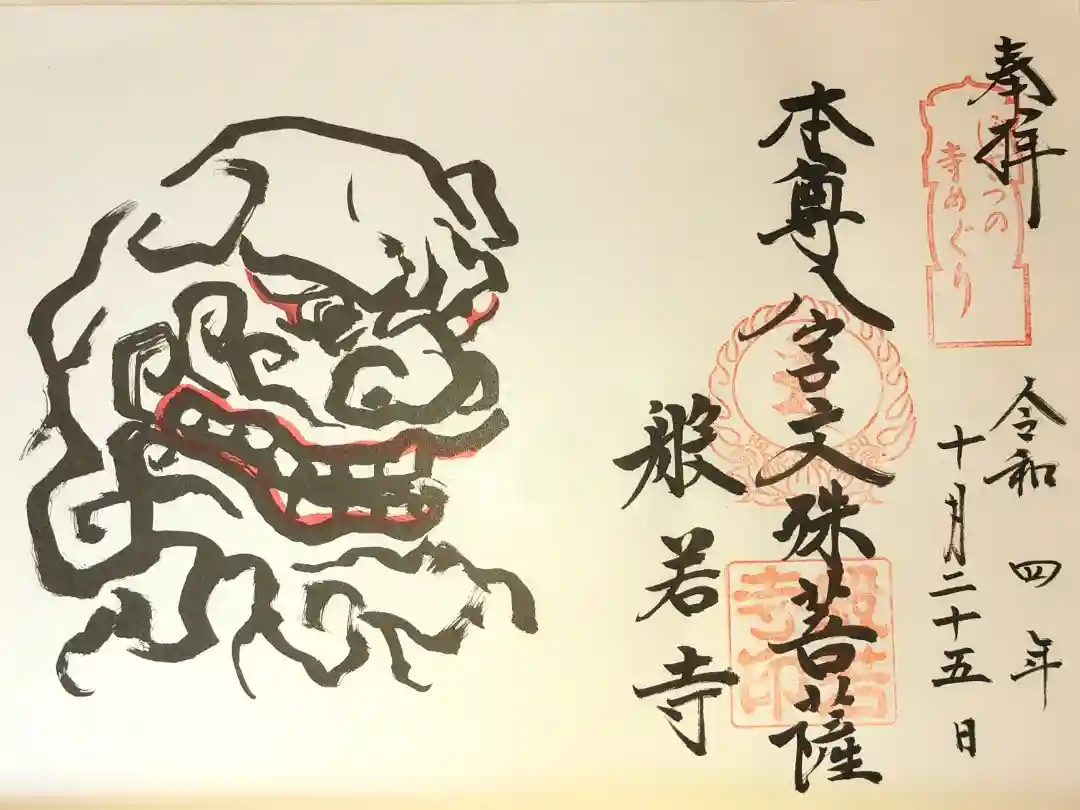 奉拝
つの
寺めぐり
令和四年
十月二十五日
本尊八字文殊菩薩
般若寺
般若
寺印